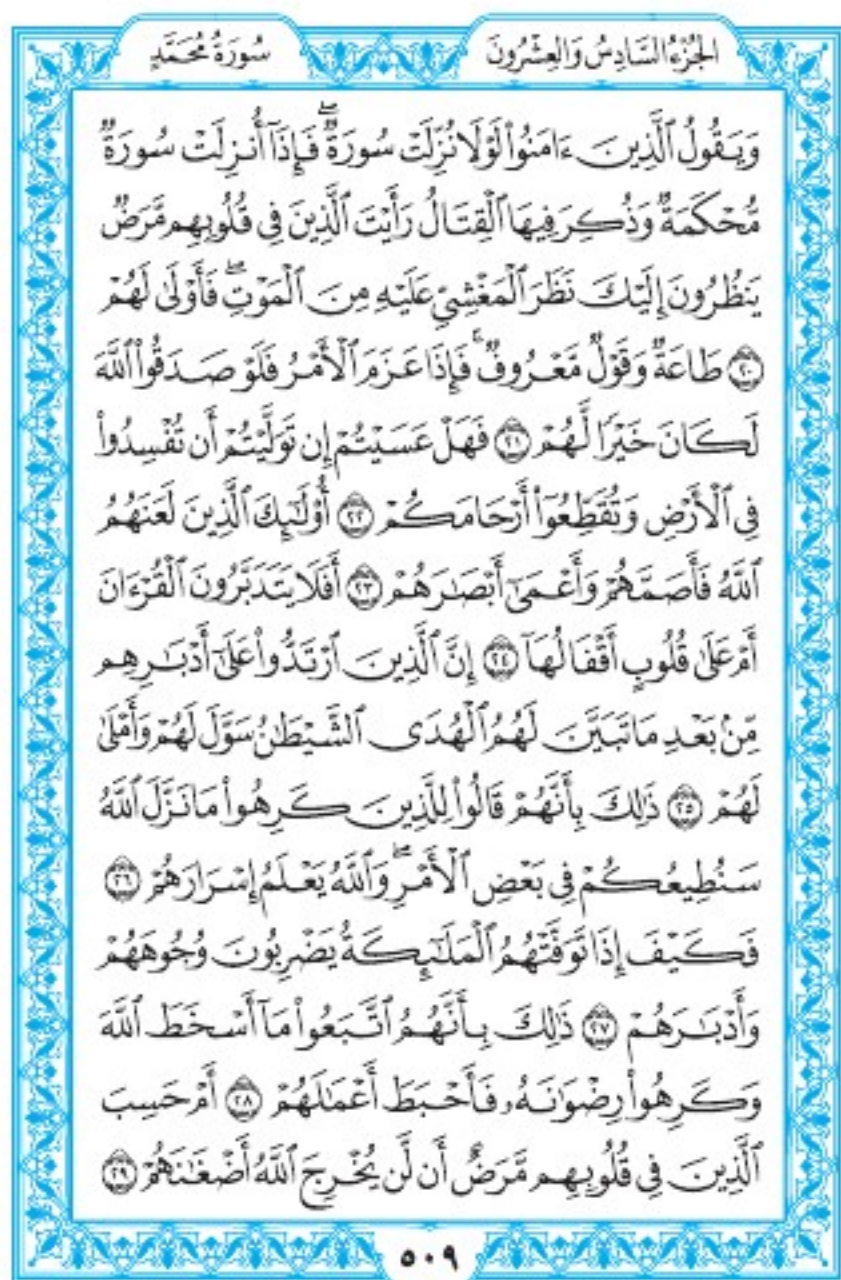 الجُزْءُ السَّادِسُ وَالعِشْرُونَ
سُورَةُ مُحَمَّدٍ
وَيَقُولُ ٱلَّذِينَ ءَامَنُواْ لَوْلَا نُزِّلَتْ سُورَةٌۖ فَإِذَآ أُنزِلَتْ سُورَةٌ
مُّحْكَمَةٌ وَذُكِرَ فِيهَا ٱلْقِتَالُ رَأَيْتَ ٱلَّذِينَ فِي قُلُوبِهِم مَّرَضٌ
يَنظُرُونَ إِلَيْكَ نَظَرَ ٱلْمَغْشِيِّ عَلَيْهِ مِنَ ٱلْمَوْتِۖ فَأَوْلَىٰ لَهُمْ
٢٠ طَاعَةٌ وَقَوْلٌ مَّعْرُوفٌۚ فَإِذَا عَزَمَ ٱلْأَمْرُ فَلَوْ صَدَقُواْ ٱللَّهَ
لَكَانَ خَيْرًا لَّهُمْ ٢١ فَهَلْ عَسَيْتُمْ إِن تَوَلَّيْتُمْ أَن تُفْسِدُواْ
فِي ٱلْأَرْضِ وَتُقَطِّعُوٓاْ أَرْحَامَكُمْ ٢٢ أُوْلَٰٓئِكَ ٱلَّذِينَ لَعَنَهُمُ
ٱللَّهُ فَأَصَمَّهُمْ وَأَعْمَىٰٓ أَبْصَٰرَهُمْ ٢٣ أَفَلَا يَتَدَبَّرُونَ ٱلْقُرْءَانَ
أَمْ عَلَىٰ قُلُوبٍ أَقْفَالُهَآ ٢٤ إِنَّ ٱلَّذِينَ ٱرْتَدُّواْ عَلَىٰٓ أَدْبَٰرِهِم
مِّنۢ بَعْدِ مَا تَبَيَّنَ لَهُمُ ٱلْهُدَى ٱلشَّيْطَٰنُ سَوَّلَ لَهُمْ وَأَمْلَىٰ
لَهُمْ ٢٥ ذَٰلِكَ بِأَنَّهُمْ قَالُواْ لِلَّذِينَ كَرِهُواْ مَا نَزَّلَ ٱللَّهُ
سَنُطِيعُكُمْ فِي بَعْضِ ٱلْأَمْرِۖ وَٱللَّهُ يَعْلَمُ إِسْرَارَهُمْ ٢٦
فَكَيْفَ إِذَا تَوَفَّتْهُمُ ٱلْمَلَٰٓئِكَةُ يَضْرِبُونَ وُجُوهَهُمْ
وَأَدْبَٰرَهُمْ ٢٧ ذَٰلِكَ بِأَنَّهُمُ ٱتَّبَعُواْ مَآ أَسْخَطَ ٱللَّهَ
وَكَرِهُواْ رِضْوَٰنَهُۥ فَأَحْبَطَ أَعْمَٰلَهُمْ ٢٨ أَمْ حَسِبَ
ٱلَّذِينَ فِي قُلُوبِهِم مَّرَضٌ أَن لَّن يُخْرِجَ ٱللَّهُ أَضْغَٰنَهُمْ ٢٩
٥٠٩